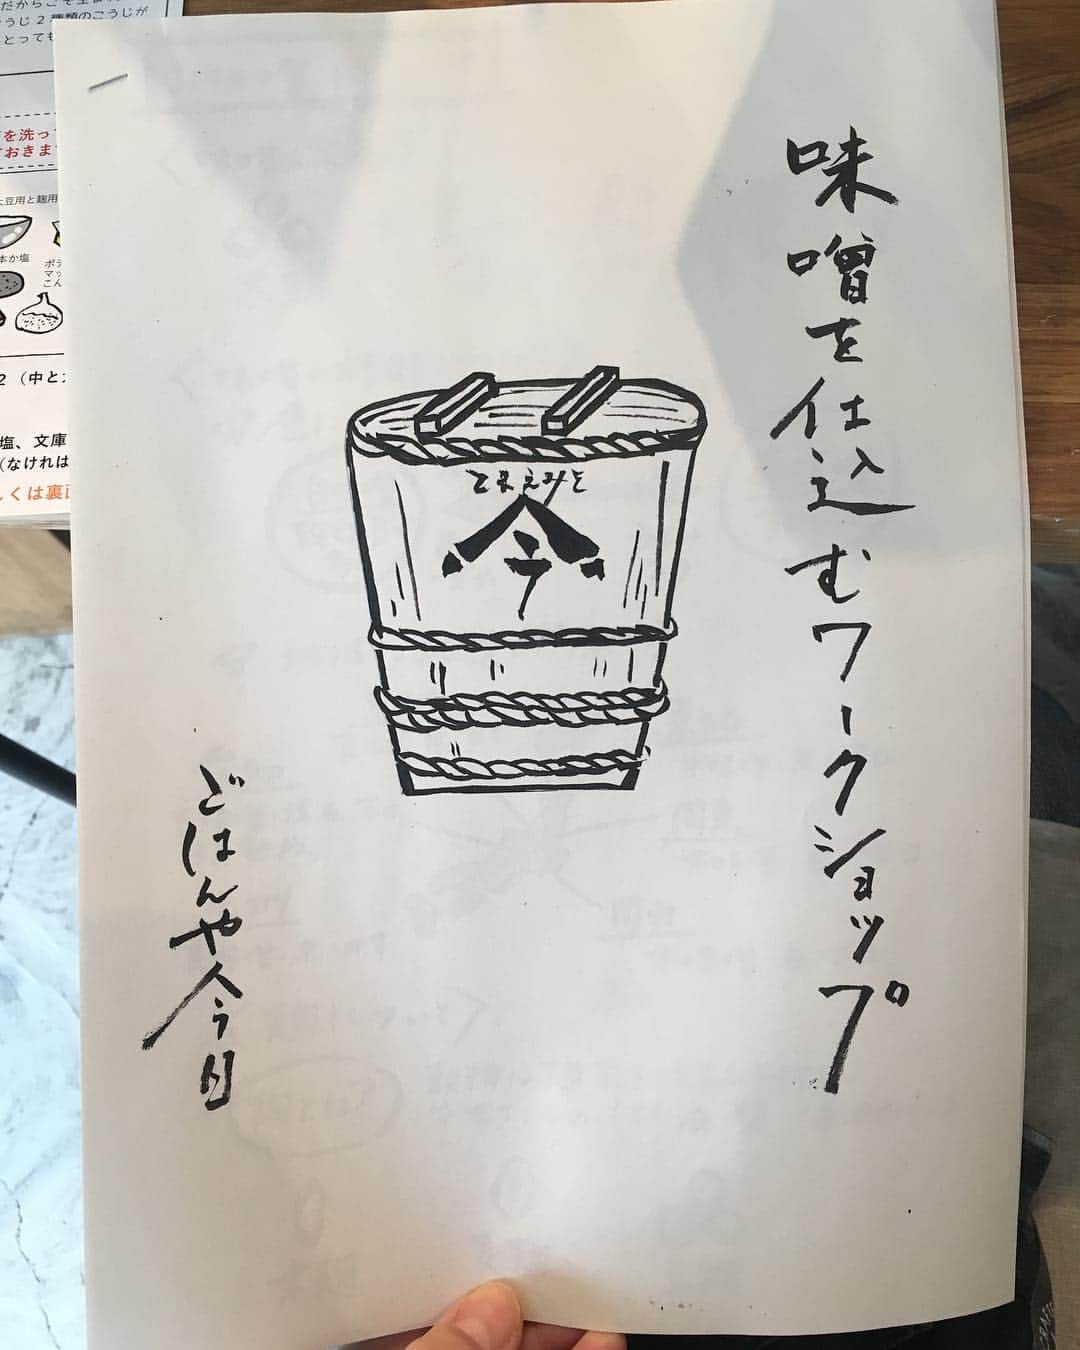 味噌を仕込むワークショップ
てまえみそ
今
ごはんや今日
だからこそ
うじ2種類のこうじが
とっても
を洗っ
おきま
大豆用と麹用
本か塩
ポ
マッ
こん
2(中と
塩、文庫
(なければ
しくは裏面